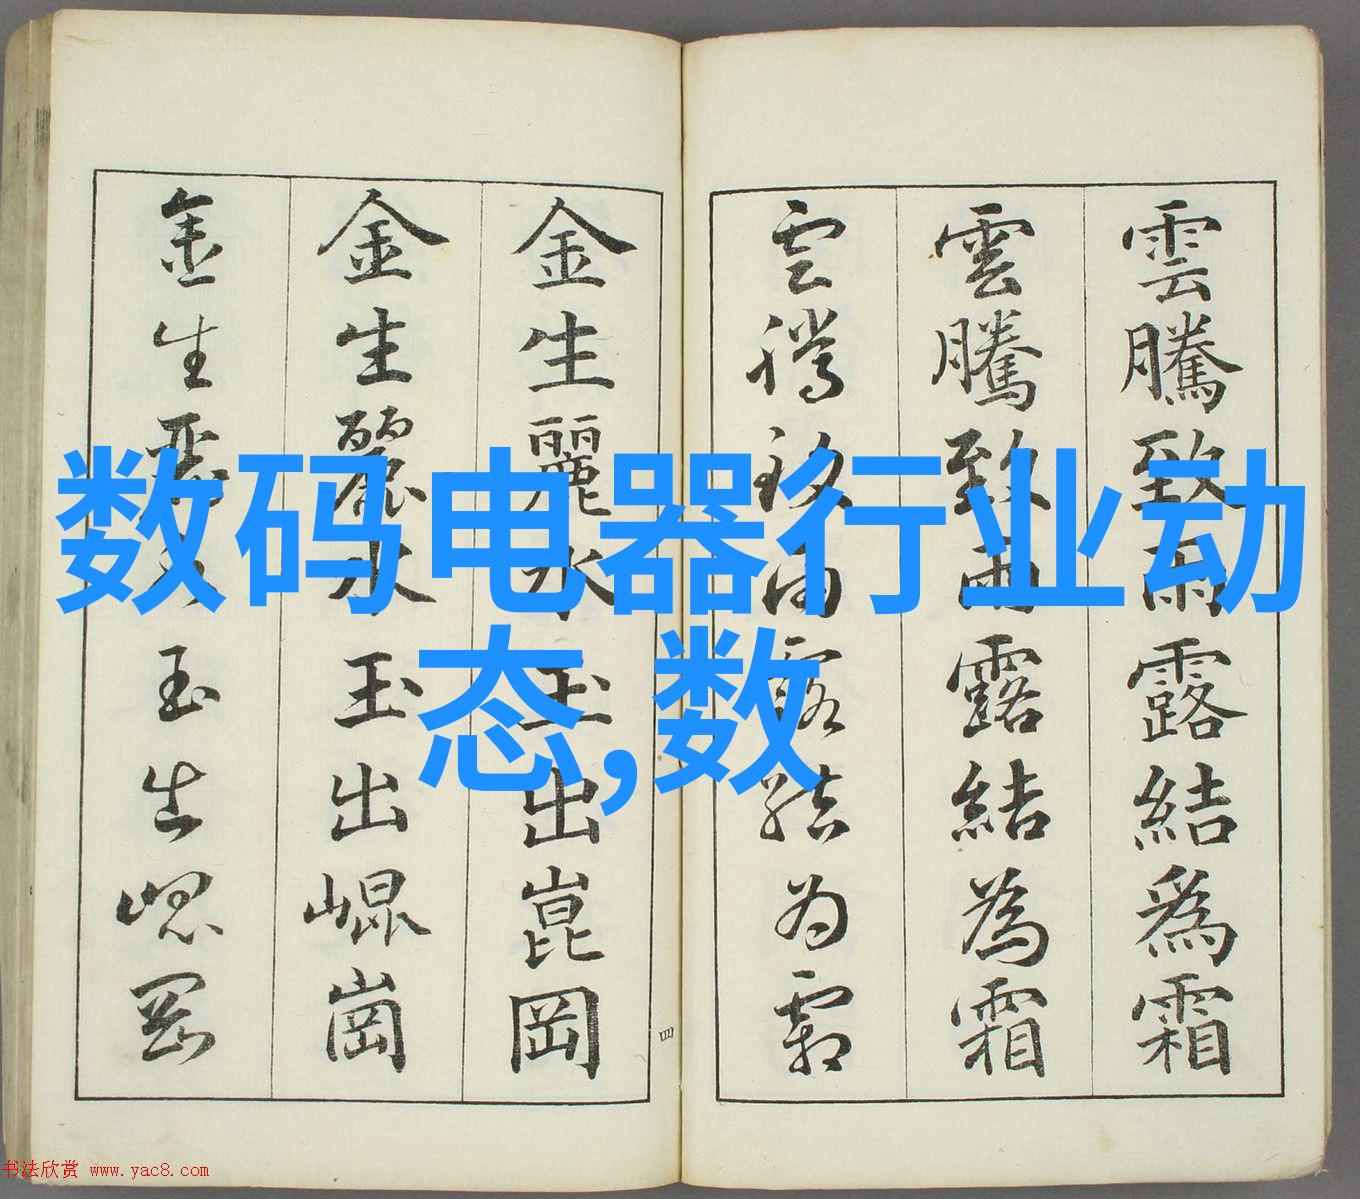 雲騰致雨露結為霜
雲騰致雨露結為霜
雲騰致雨露結為霜
金生麗水玉出崑岡
金生麗水玉出崐崗
金生麗水玉出崐岡
四
数码电器行业动
态,数
书法欣赏 www.yac8.com